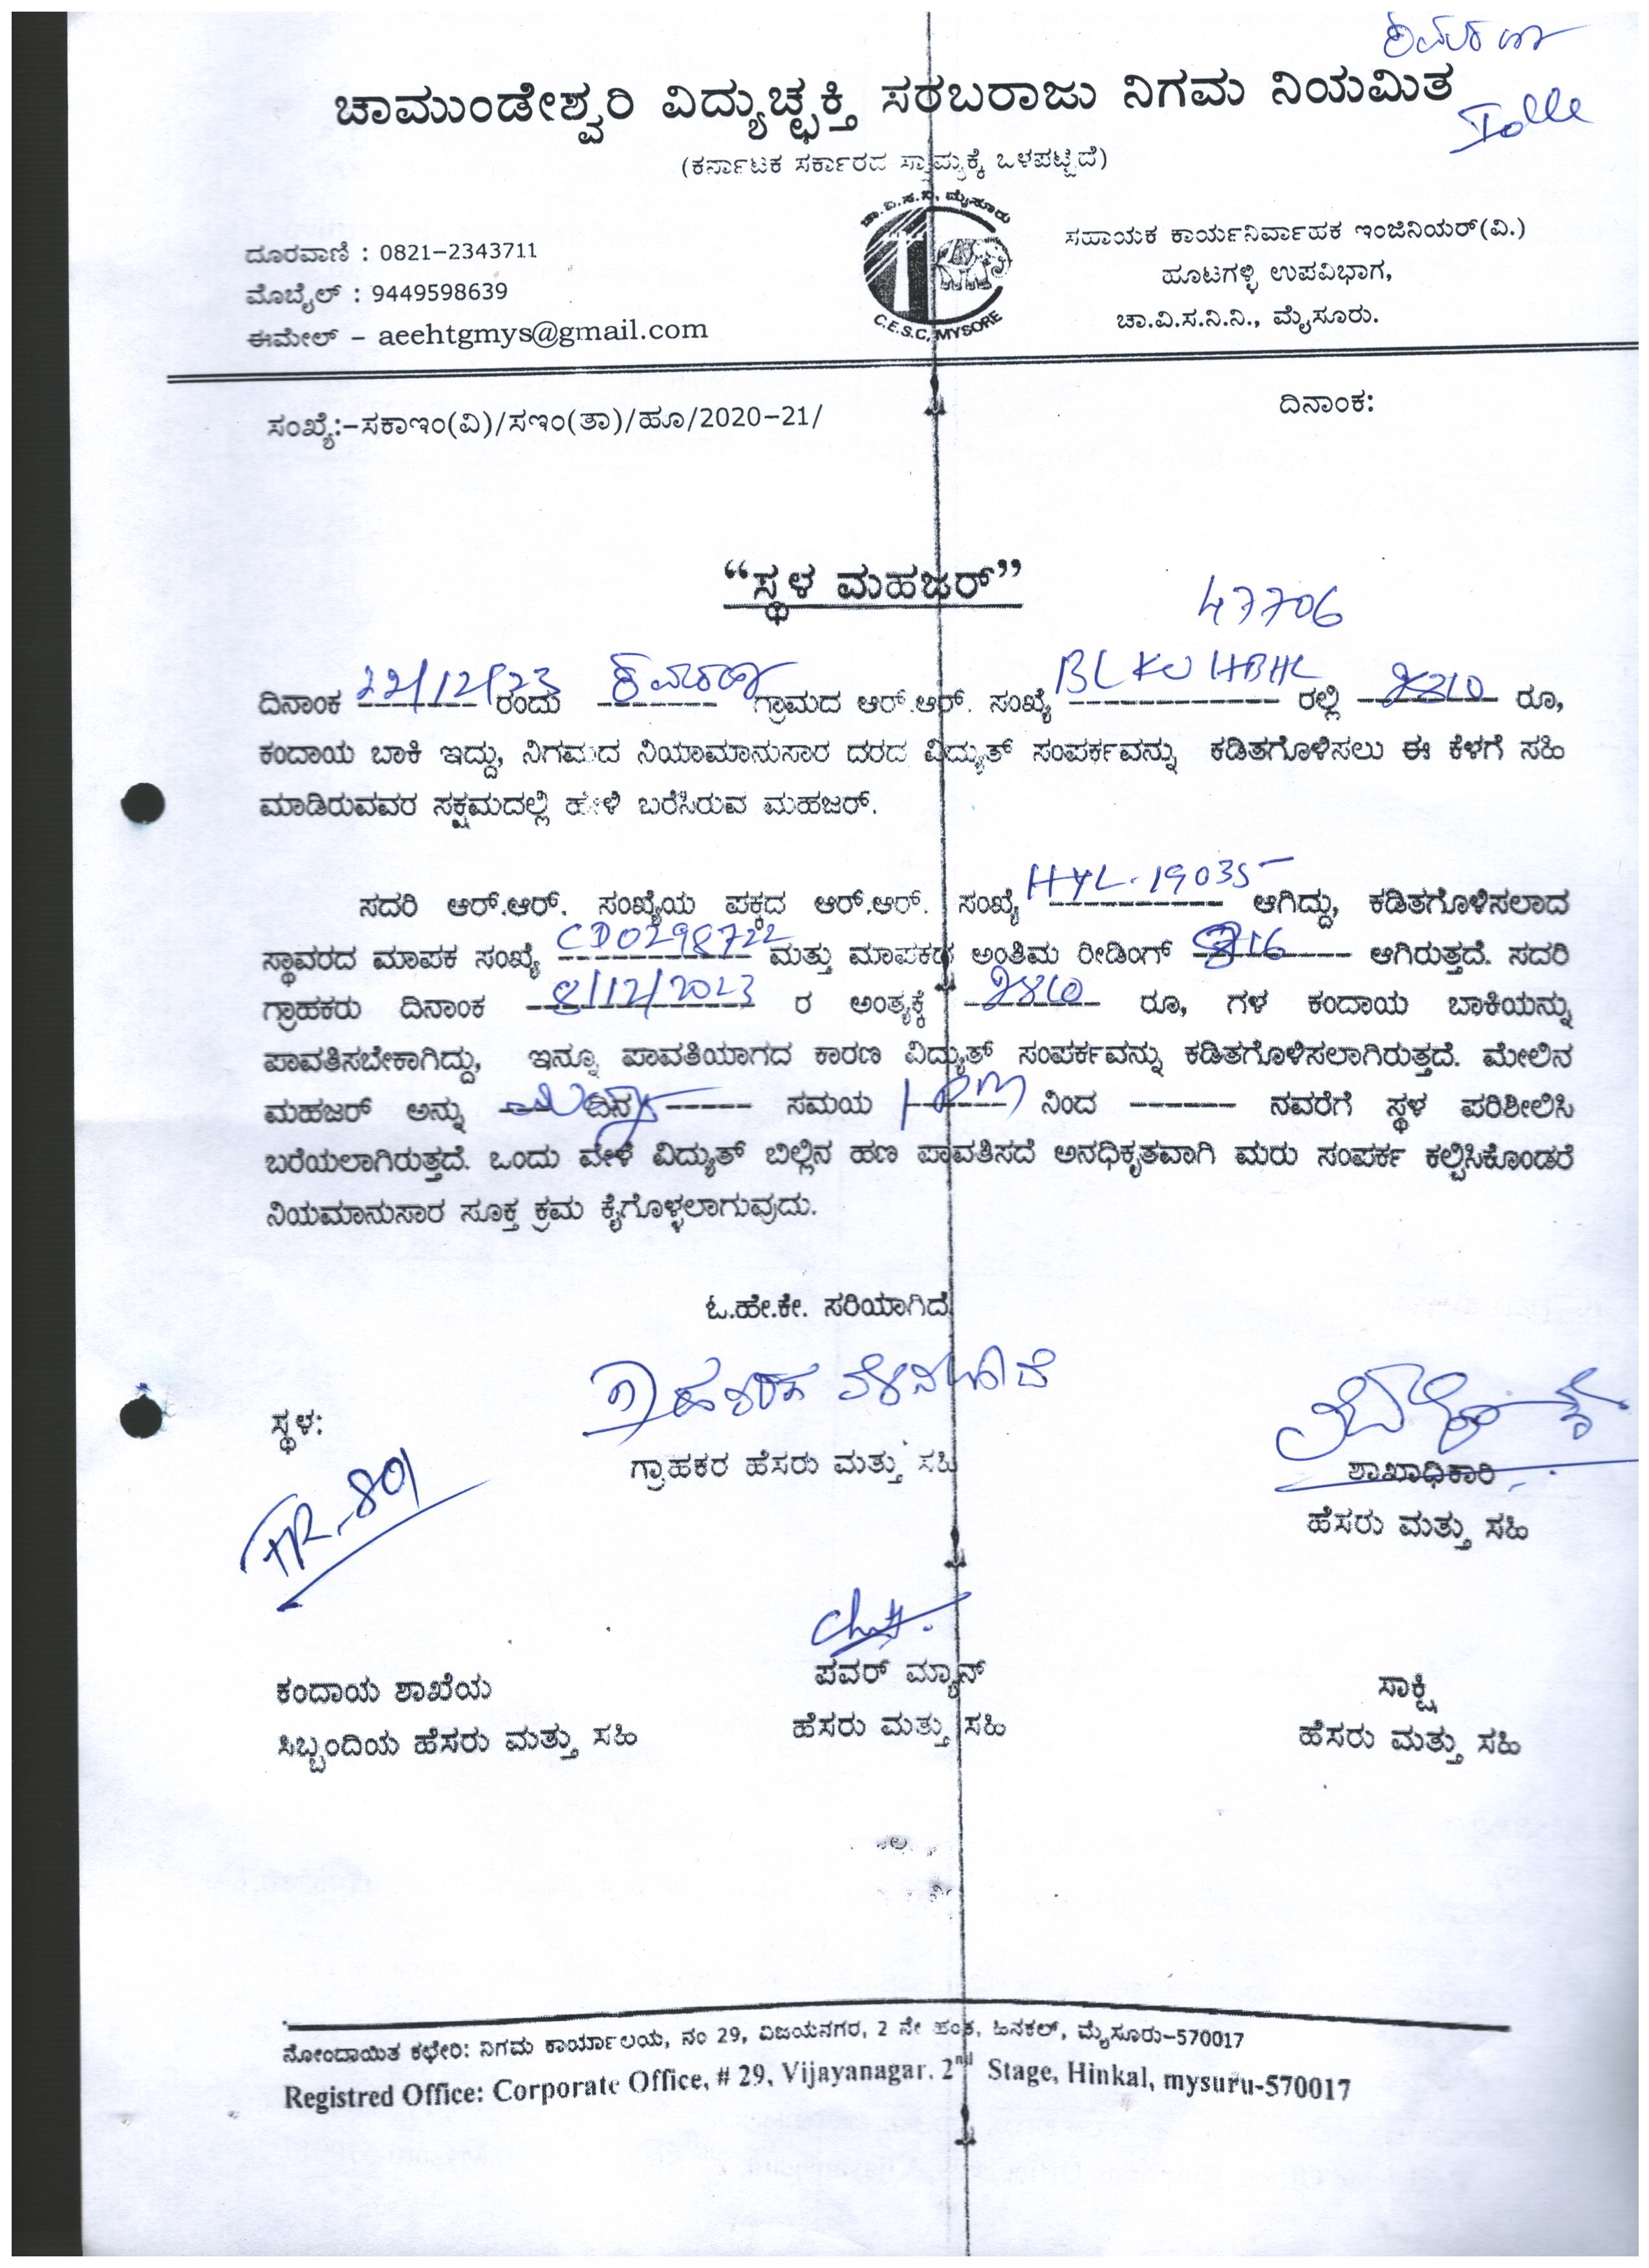 ಚಾಮುಂಡೇಶ್ವರಿ ವಿದ್ಯುಚ್ಛಕ್ತಿ ಸರಬರಾಜು ನಿಗಮ ನಿಯಮಿತ
(ಕರ್ನಾಟಕ ಸರ್ಕಾರದ ಸ್ವಾಮ್ಯಕ್ಕೆ ಒಳಪಟ್ಟಿದೆ)
ಚಾ.ವಿ.ಸ.ನಿ, ಮೈಸೂರು
C.E.S.C, MYSORE
ದೂರವಾಣಿ : 0821-2343711
ಮೊಬೈಲ್ : 9449598639
ಈಮೇಲ್ - aeehtgmys@gmail.com
ಸಹಾಯಕ ಕಾರ್ಯನಿರ್ವಾಹಕ ಇಂಜಿನಿಯರ್(ವಿ.)
ಹೂಟಗಳ್ಳಿ ಉಪವಿಭಾಗ,
ಚಾ.ವಿ.ಸ.ನಿ.ನಿ., ಮೈಸೂರು.
ಸಂಖ್ಯೆ:-ಸಕಾಇಂ(ವಿ)/ಸಇಂ(ತಾ)/ಹೂ/2020-21/
ದಿನಾಂಕ:
“ಸ್ಥಳ ಮಹಜರ್”
47706
ದಿನಾಂಕ 22/12/23 ರಂದು ಗ್ರಾಮದ ಆರ್.ಆರ್. ಸಂಖ್ಯೆ ರಲ್ಲಿ ರೂ,
ಕಂದಾಯ ಬಾಕಿ ಇದ್ದು, ನಿಗಮದ ನಿಯಾಮಾನುಸಾರ ದರದ ವಿದ್ಯುತ್ ಸಂಪರ್ಕವನ್ನು ಕಡಿತಗೊಳಿಸಲು ಈ ಕೆಳಗೆ ಸಹಿ
ಮಾಡಿರುವವರ ಸಕ್ಷಮದಲ್ಲಿ ಹೇಳಿ ಬರೆಸಿರುವ ಮಹಜರ್.
ಸದರಿ ಆರ್.ಆರ್. ಸಂಖ್ಯೆಯ ಪಕ್ಕದ ಆರ್.ಆರ್. ಸಂಖ್ಯೆ HYL-19035 ಆಗಿದ್ದು, ಕಡಿತಗೊಳಿಸಲಾದ
ಸ್ಥಾವರದ ಮಾಪಕ ಸಂಖ್ಯೆ CD0298722 ಮತ್ತು ಮಾಪಕದ ಅಂತಿಮ ರೀಡಿಂಗ್ ಆಗಿರುತ್ತದೆ. ಸದರಿ
ಗ್ರಾಹಕರು ದಿನಾಂಕ 8/12/2023 ರ ಅಂತ್ಯಕ್ಕೆ ರೂ, ಗಳ ಕಂದಾಯ ಬಾಕಿಯನ್ನು
ಪಾವತಿಸಬೇಕಾಗಿದ್ದು, ಇನ್ನೂ ಪಾವತಿಯಾಗದ ಕಾರಣ ವಿದ್ಯುತ್ ಸಂಪರ್ಕವನ್ನು ಕಡಿತಗೊಳಿಸಲಾಗಿರುತ್ತದೆ. ಮೇಲಿನ
ಮಹಜರ್ ಅನ್ನು ದಿನ ------ ಸಮಯ 1 PM ನಿಂದ ------ ನವರೆಗೆ ಸ್ಥಳ ಪರಿಶೀಲಿಸಿ
ಬರೆಯಲಾಗಿರುತ್ತದೆ. ಒಂದು ವೇಳೆ ವಿದ್ಯುತ್ ಬಿಲ್ಲಿನ ಹಣ ಪಾವತಿಸದೆ ಅನಧಿಕೃತವಾಗಿ ಮರು ಸಂಪರ್ಕ ಕಲ್ಪಿಸಿಕೊಂಡರೆ
ನಿಯಮಾನುಸಾರ ಸೂಕ್ತ ಕ್ರಮ ಕೈಗೊಳ್ಳಲಾಗುವುದು.
ಓ.ಹೇ.ಕೇ. ಸರಿಯಾಗಿದೆ
ಸ್ಥಳ:
ಗ್ರಾಹಕರ ಹೆಸರು ಮತ್ತು ಸಹಿ
ಶಾಖಾಧಿಕಾರಿ
ಹೆಸರು ಮತ್ತು ಸಹಿ
ಕಂದಾಯ ಶಾಖೆಯ
ಸಿಬ್ಬಂದಿಯ ಹೆಸರು ಮತ್ತು ಸಹಿ
ಪವರ್ ಮ್ಯಾನ್
ಹೆಸರು ಮತ್ತು ಸಹಿ
ಸಾಕ್ಷಿ
ಹೆಸರು ಮತ್ತು ಸಹಿ
ನೋಂದಾಯಿತ ಕಛೇರಿ: ನಿಗಮ ಕಾರ್ಯಾಲಯ, ನಂ 29, ವಿಜಯನಗರ, 2 ನೇ ಹಂತ, ಹಿನಕಲ್, ಮೈಸೂರು-570017
Registred Office: Corporate Office, # 29, Vijayanagar. 2nd Stage, Hinkal, mysuru-570017